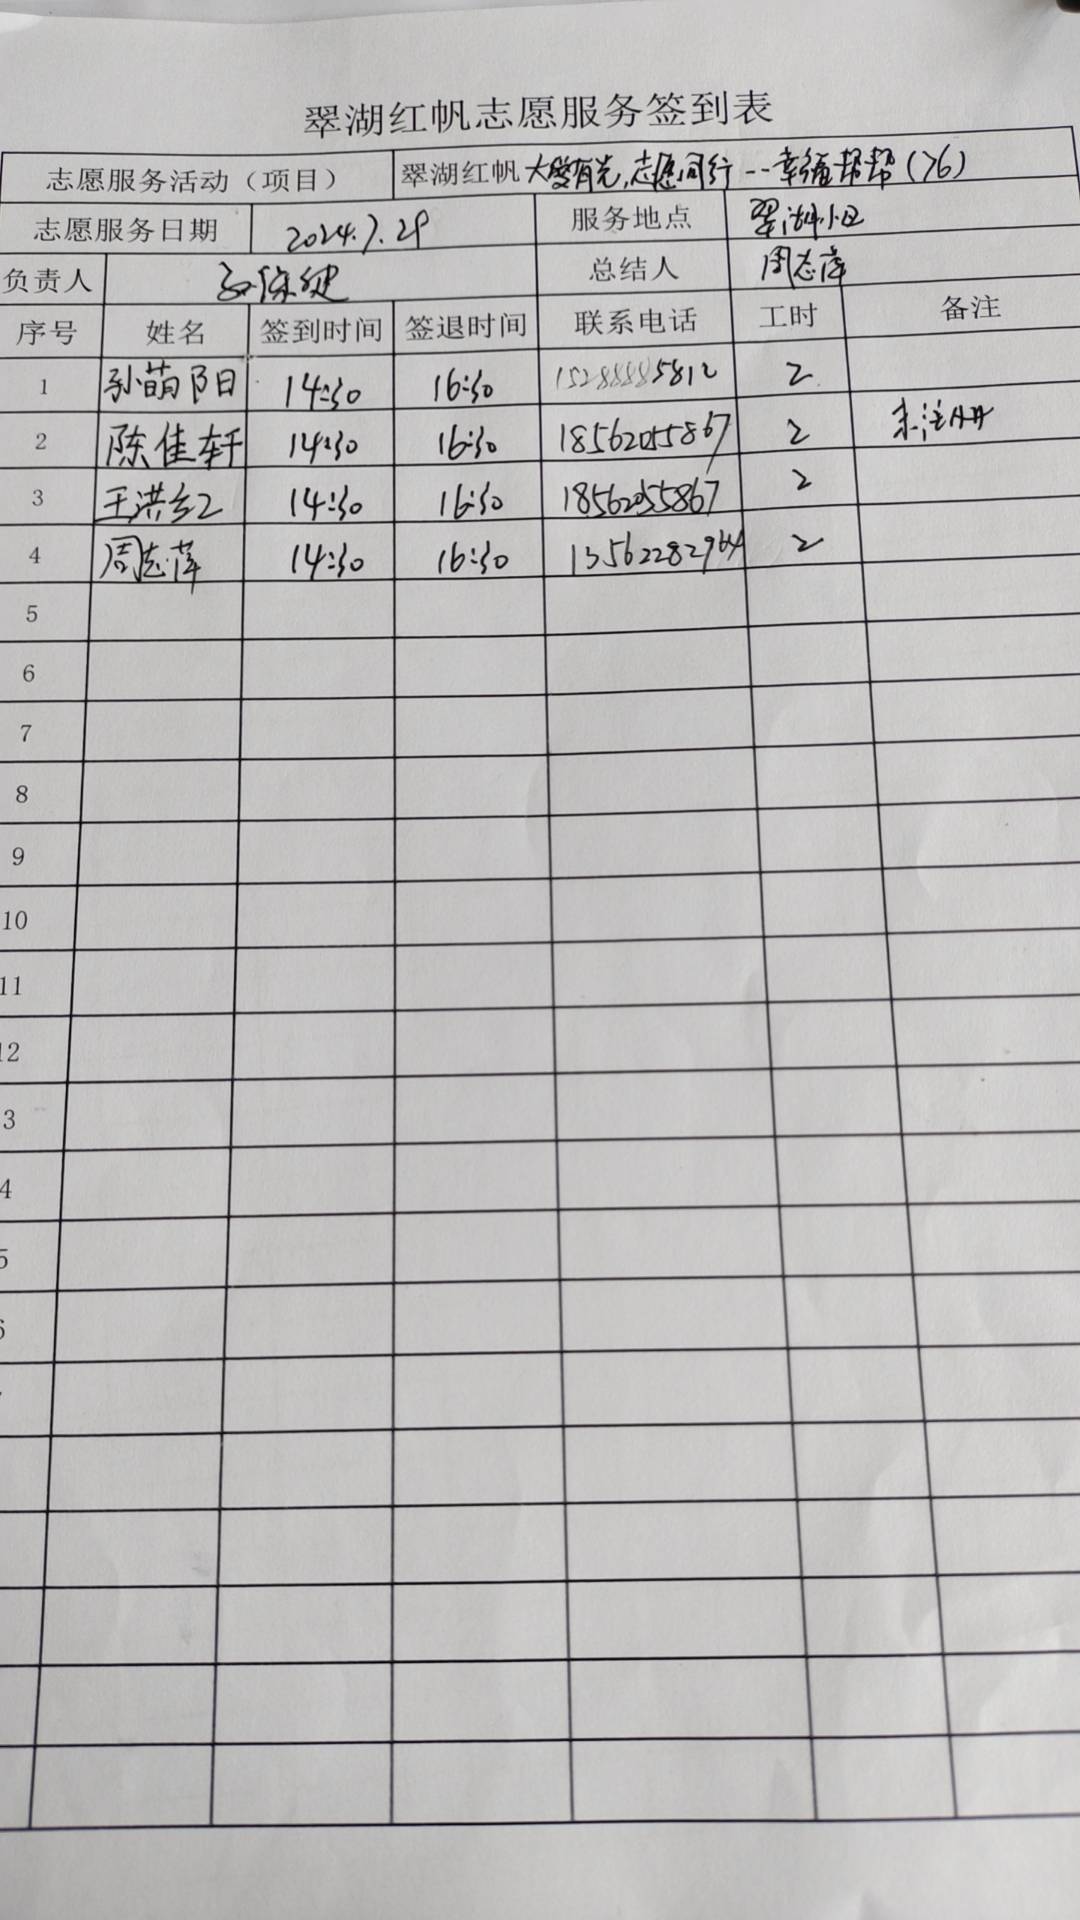 翠湖红帆志愿服务签到表
志愿服务活动（项目） 翠湖红帆 大爱有光,志愿同行--幸福帮帮(76)
志愿服务日期 2024.7.29 服务地点 翠湖小区
负责人 总结人 周志萍
序号 姓名 签到时间 签退时间 联系电话 工时 备注
1 孙萌阳 14:30 16:30 15288885812 2
2 陈佳轩 14:30 16:30 18562055867 2 未注册
3 王洪红 14:30 16:30 18562055867 2
4 周志萍 14:30 16:30 13562282964 2
5
6
7
8
9
10
11
12
3
4
5
6